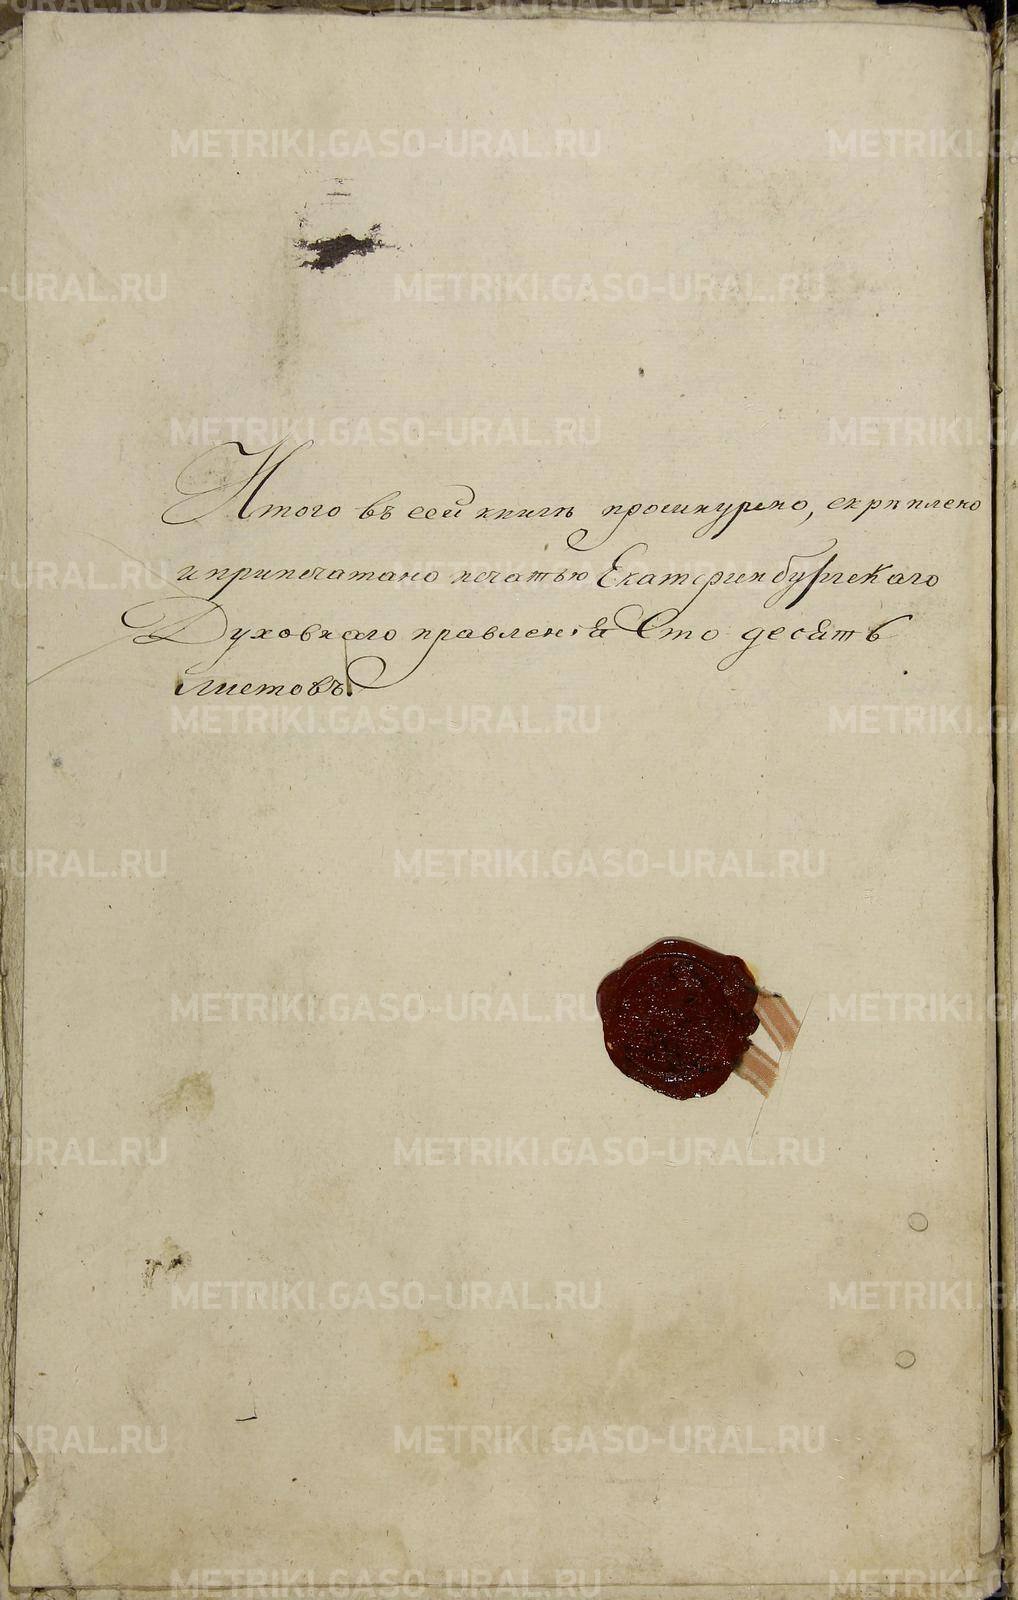 Итого въ сей книгѣ прошнурено, скрѣплено
и припечатано печатью Екатеринбургскаго
Духовнаго правленія Сто десять
листовъ.
METRIKI.GASO-URAL.RU